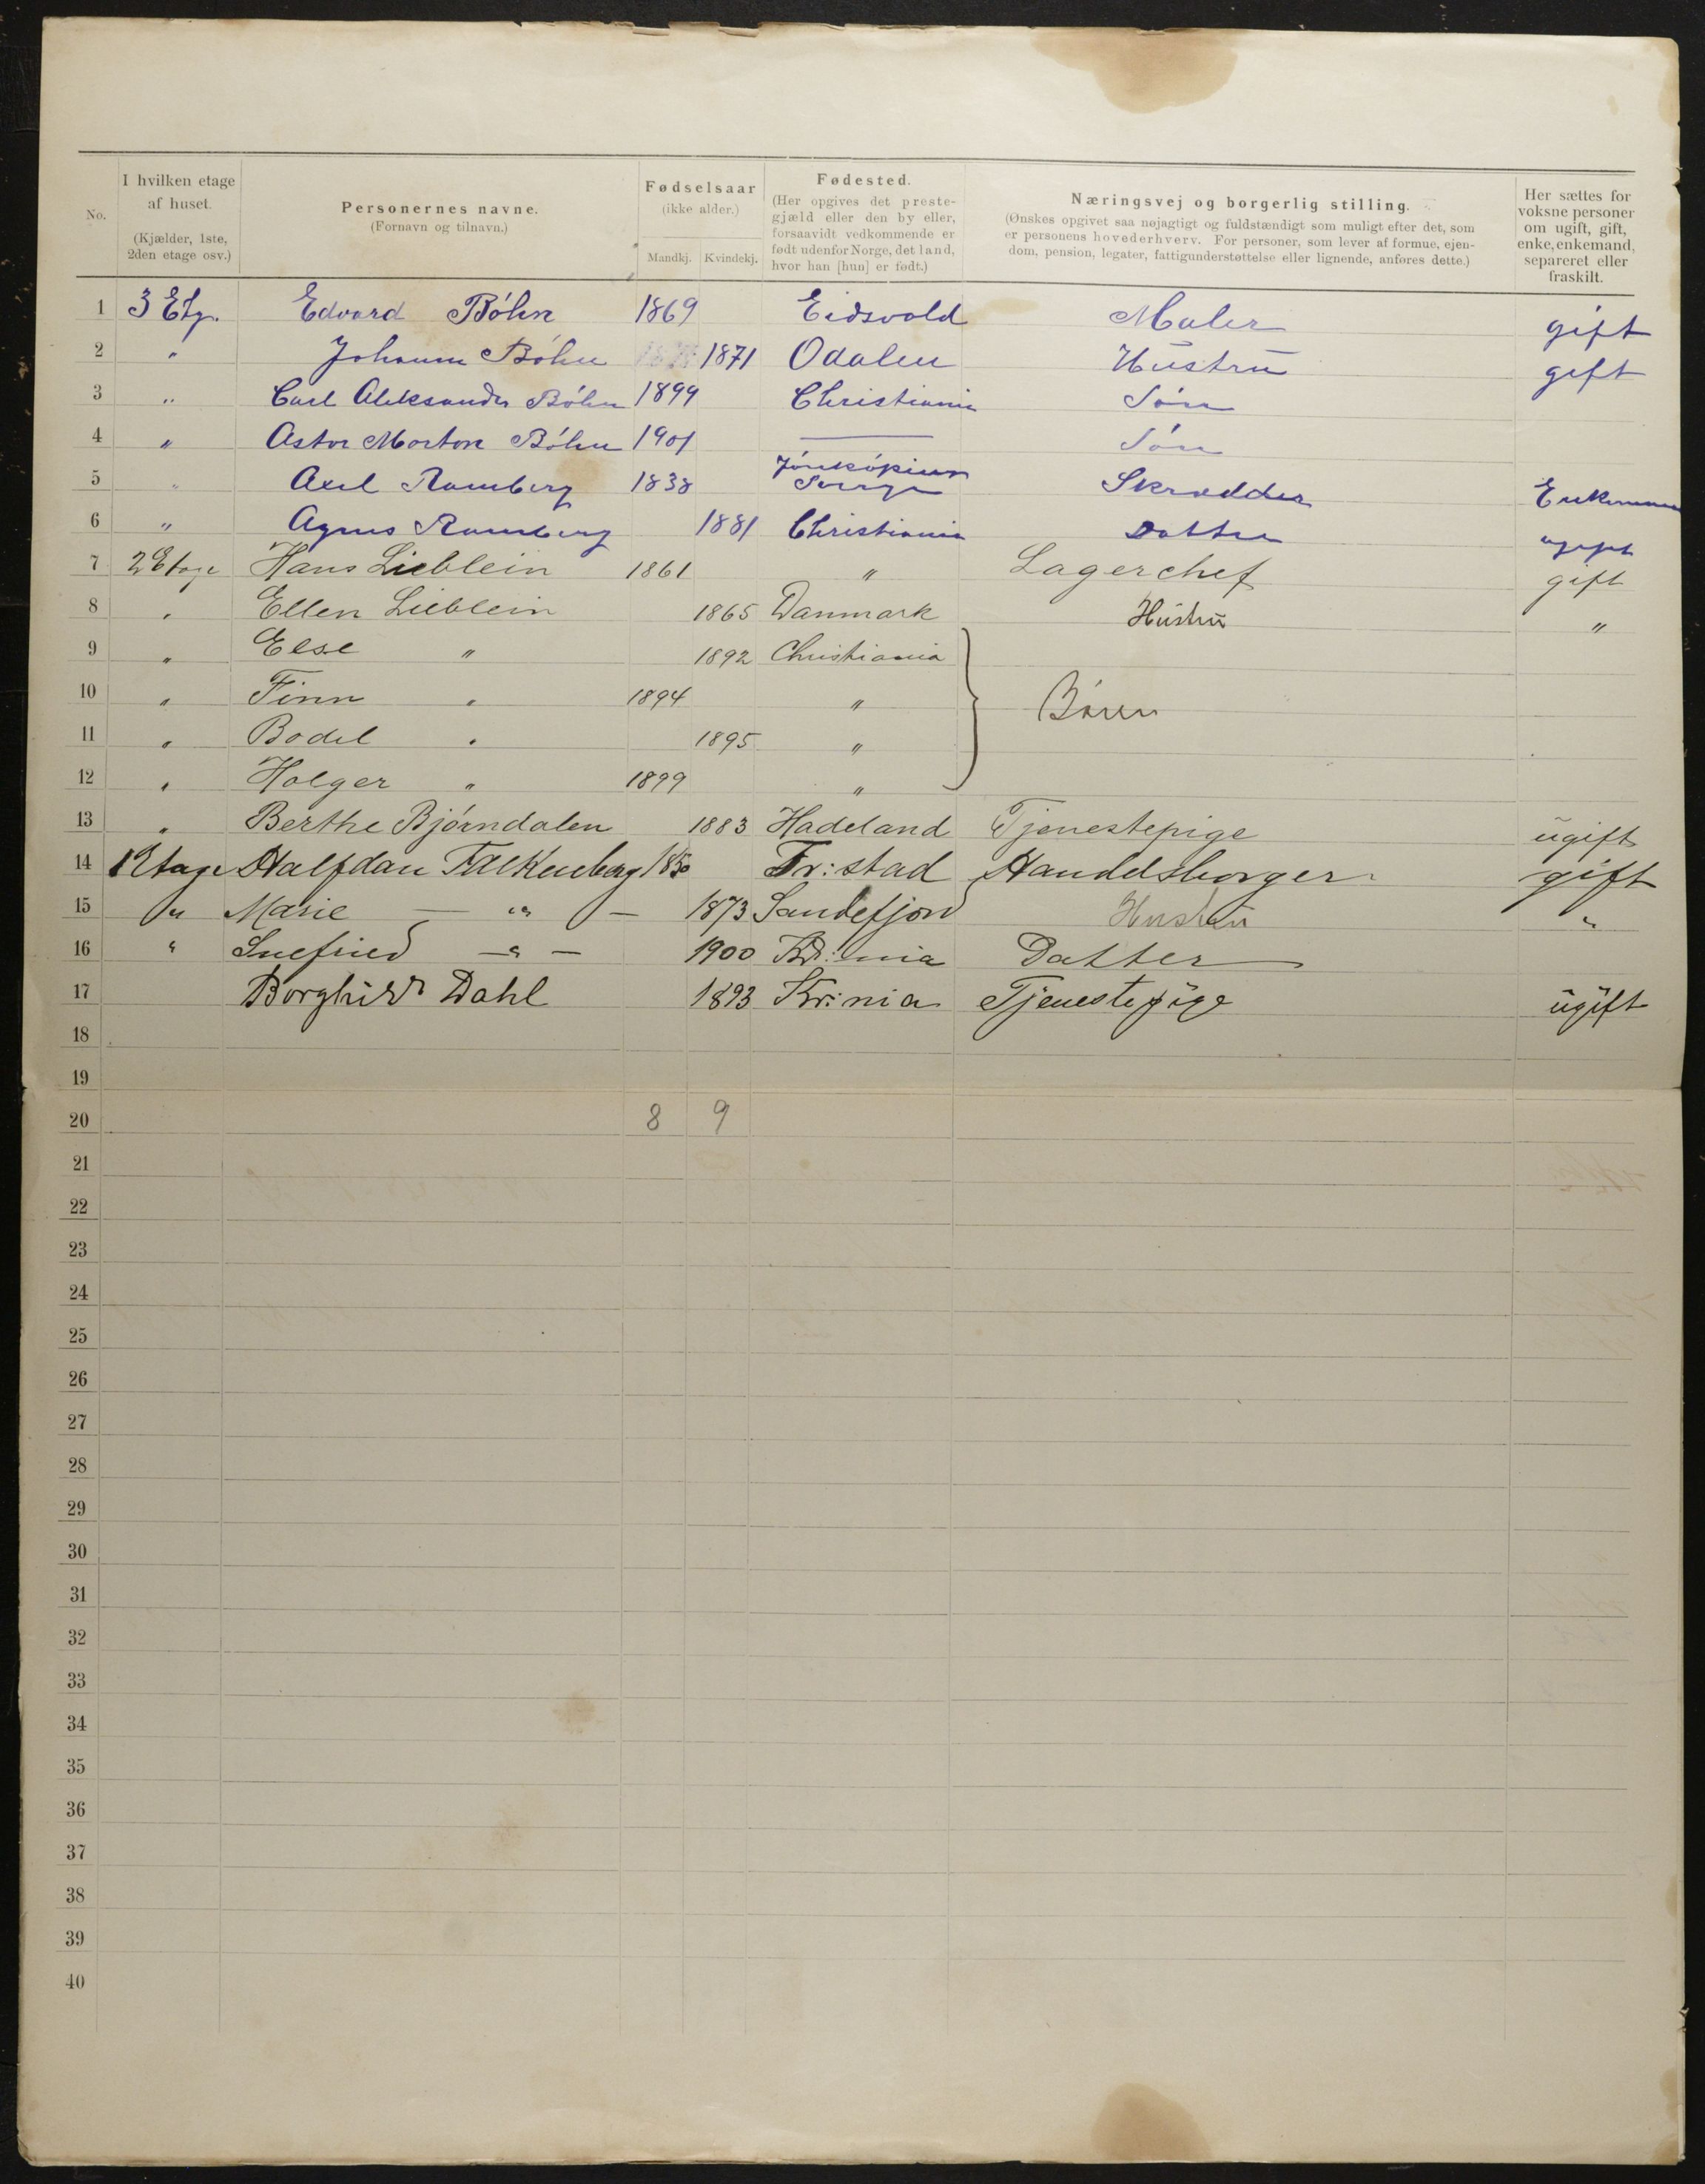 No.
I hvilken etage af huset. (Kjælder, 1ste, 2den etage osv.)
Personernes navne. (Fornavn og tilnavn.)
Fødselsaar (ikke alder.) Mandkj. Kvindekj.
Fødested. (Her opgives det prestegjæld eller den by eller, forsaavidt vedkommende er født udenfor Norge, det land, hvor han [hun] er født.)
Næringsvej og borgerlig stilling. (Ønskes opgivet saa nøjagtigt og fuldstændigt som muligt efter det, som er personens hovederhverv. For personer, som lever af formue, ejendom, pension, legater, fattigunderstøttelse eller lignende, anføres dette.)
Her sættes for voksne personer om ugift, gift, enke, enkemand, separeret eller fraskilt.
1 3 Etg. Edvard Böhn 1869 Eidsvold Maler gift
2 " Johanne Böhn 1871 Odalen Hustru gift
3 " Carl Aleksander Böhn 1899 Christiania Sön
4 " Astor Morton Böhn 1901 — Sön
5 " Axel Ramberg 1838 Jönköping Sverge Skrædder Enkemand
6 " Agnes Ramberg 1881 Christiania Datter ugift
7 2 Etage Hans Lieblein 1861 " Lagerchef gift
8 " Ellen Lieblein 1865 Danmark Hustru "
9 " Else " 1892 Christiania
10 " Finn " 1894 " } Börn
11 " Bodil " 1895 "
12 " Holger " 1899 "
13 " Berthe Björndalen 1883 Hadeland Tjenestepige ugift
14 1 Etage Halfdan Falkenberg 1850 Fr:stad Handelsborger gift
15 " Marie — " — 1873 Sandefjord Hustru "
16 " Snefried — " — 1900 Kr:nia Datter
17 Borghild Dahl 1893 Kr:nia Tjenestepige ugift
18
19
20 8 9
21
22
23
24
25
26
27
28
29
30
31
32
33
34
35
36
37
38
39
40